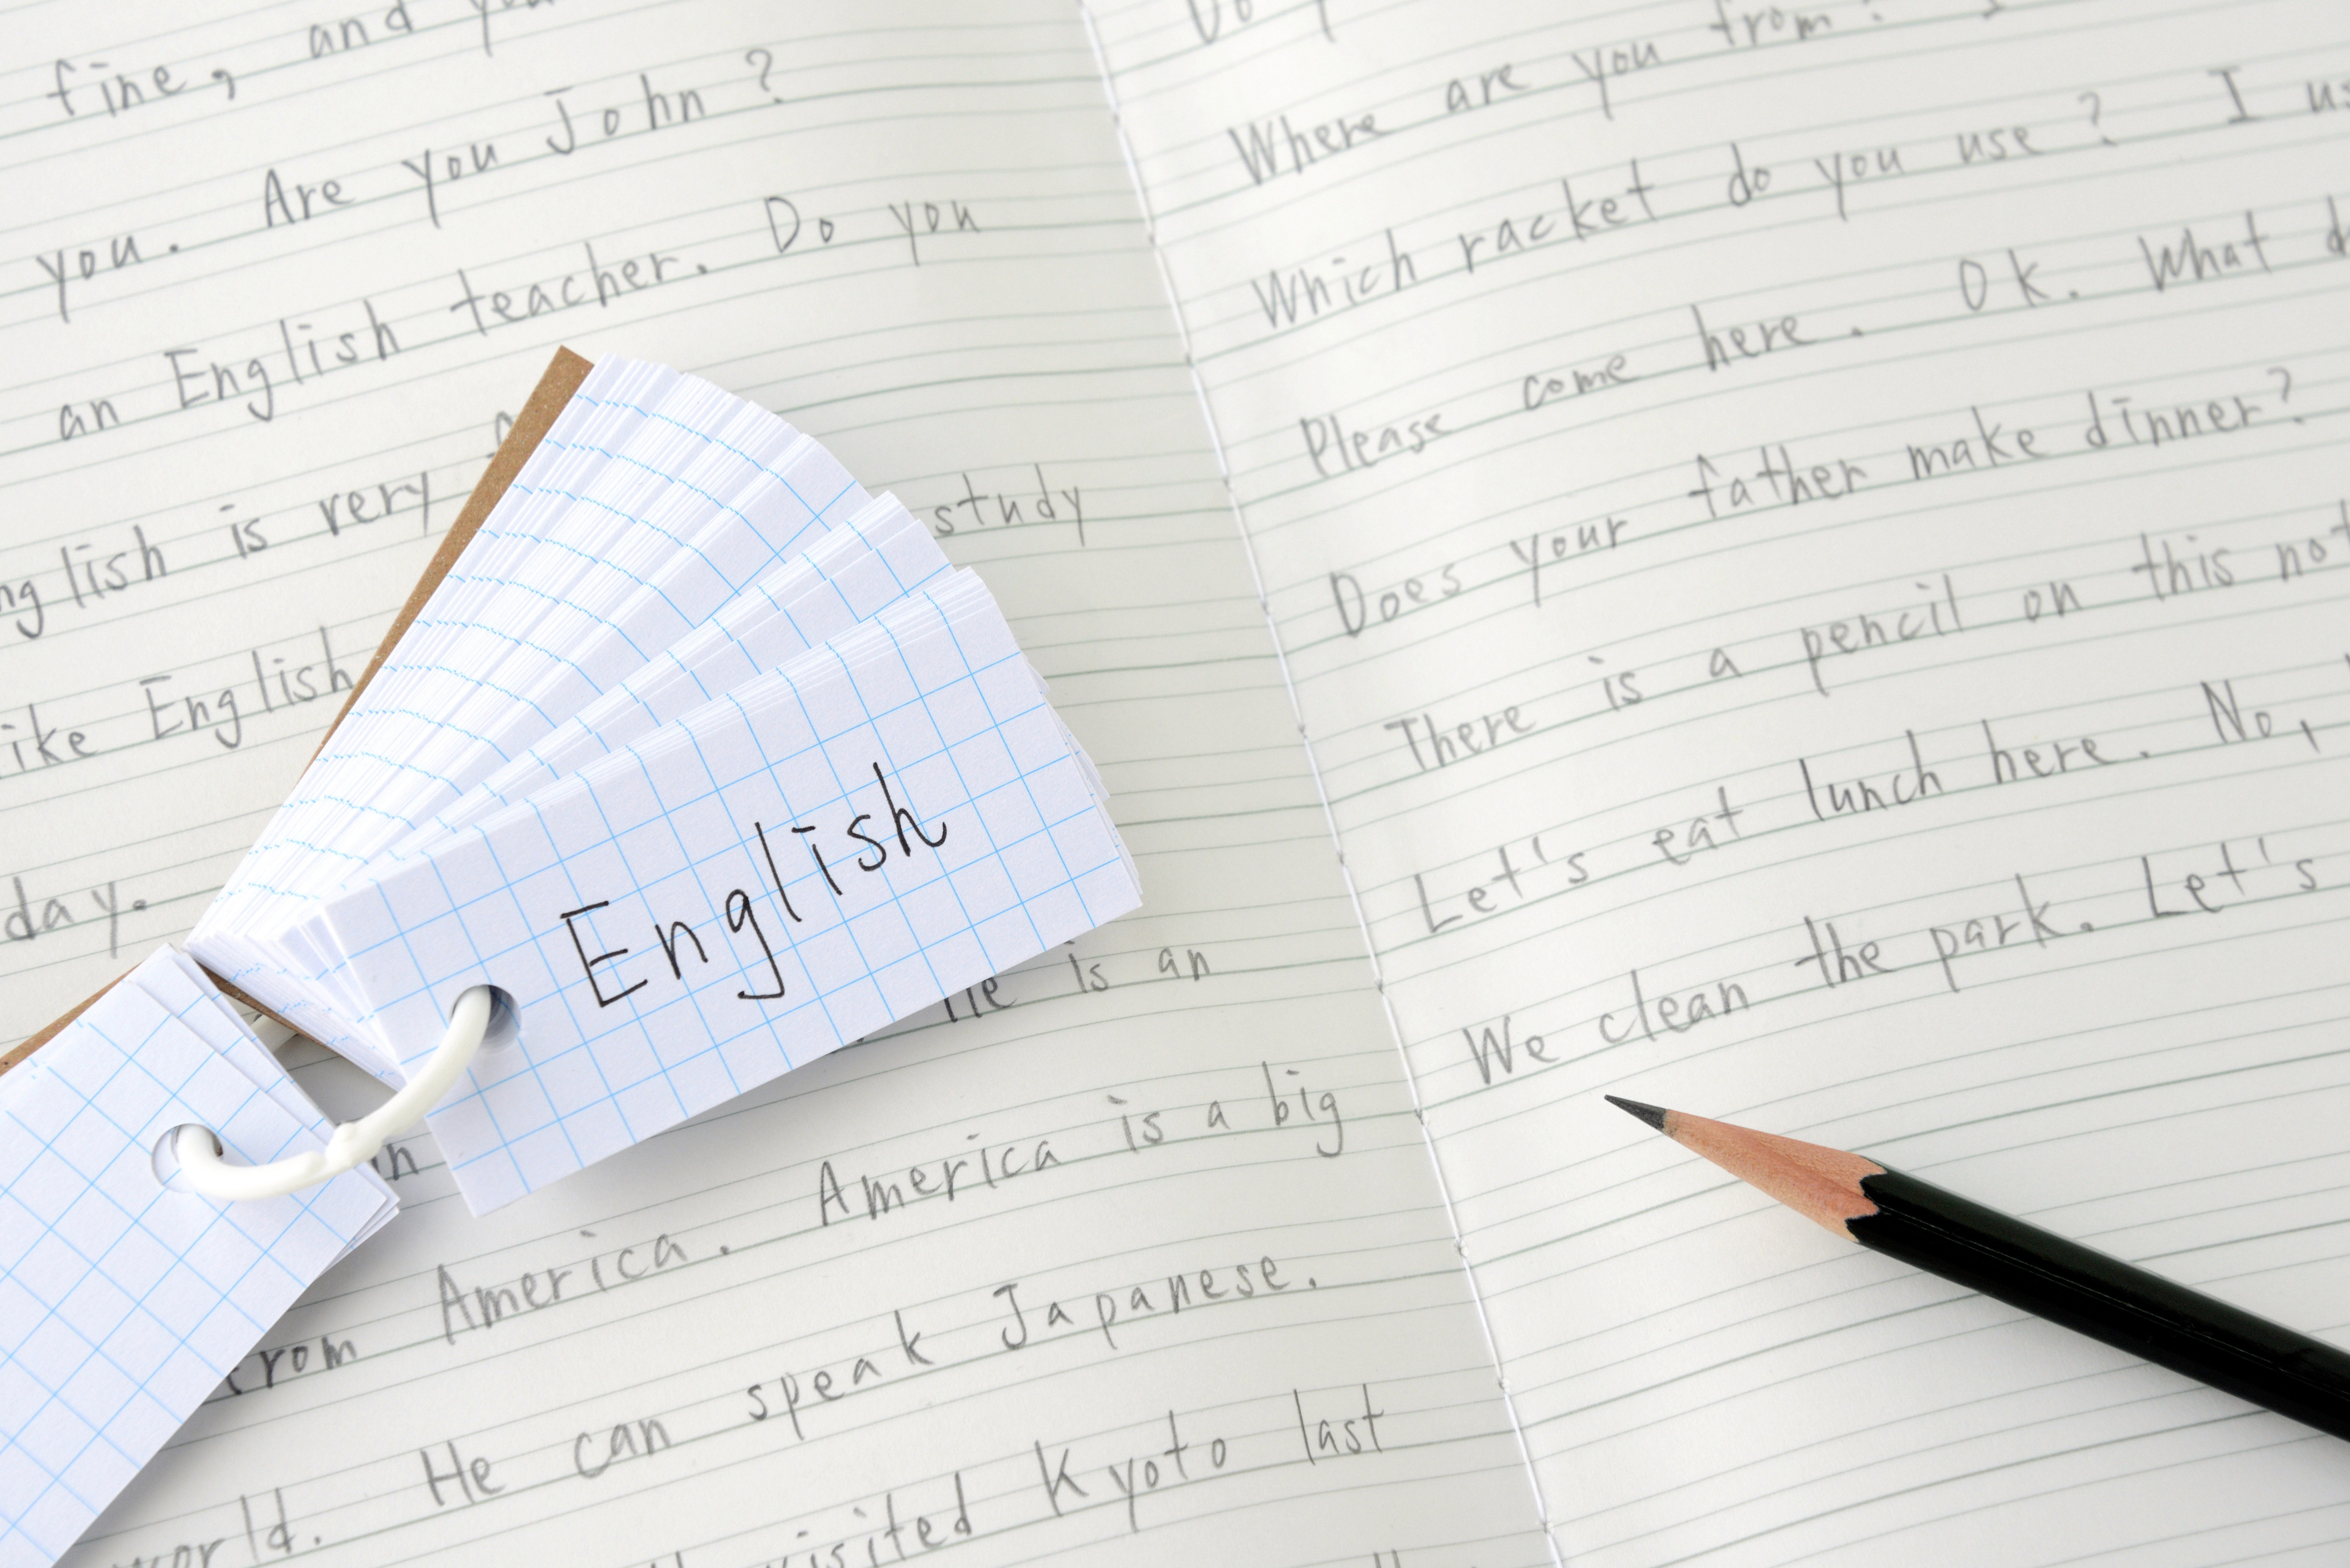 fine, and
you. Are you John?
an English teacher. Do you
is very
study
English
day.
is an
from America. America is a big
world. He can speak Japanese.
visited Kyoto last
English
Where are you from?
Which racket do you use? I
Please come here. Ok. What
Does your father make dinner?
There is a pencil on this
Let's eat lunch here. No,
We clean the park. Let's